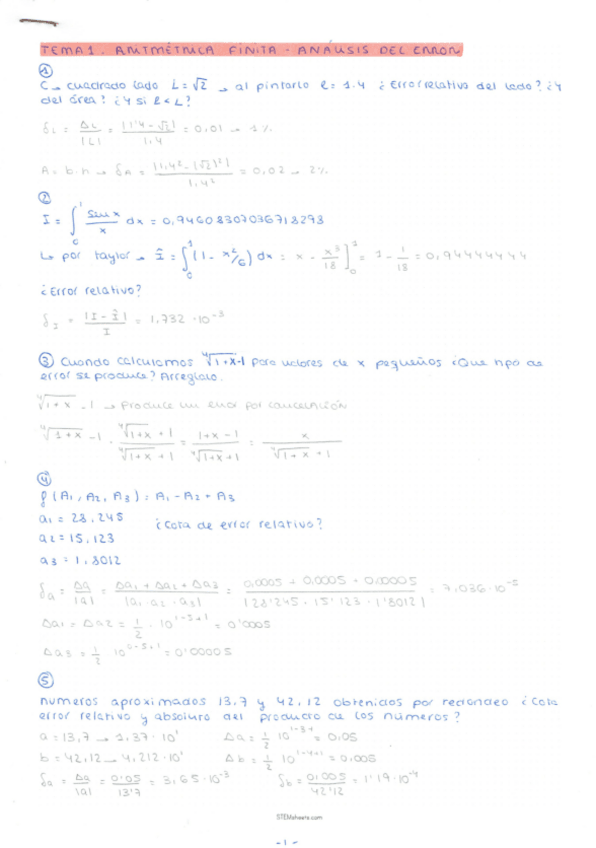 TEMA 1. ARITMÉTRICA FINITA - ANÁLISIS DEL ERROR
①
C → cuadrado lado L = √2 → al pintarlo l = 1.4 ¿Error relativo del lado? ¿Y
del área? ¿Y si l < L?
δL = ΔL/|L| = |1'4 - √2|/1.4 = 0,01 → 1%
A = b·h → δA = |1,4² - (√2)²|/1,4² = 0,02 → 2%
②
I = ∫₀¹ sen x/x dx = 0,94608307036718298
↳ por taylor → Î = ∫₀¹ (1 - x²/6) dx = x - x³/18 ]₀¹ = 1 - 1/18 = 0,94444444
¿Error relativo?
δI = |I - Î|/I = 1,732 · 10⁻³
③ Cuando calculamos ⁴√1+x -1 para valores de x pequeños ¿Que tipo de
error se produce? Arreglalo.
⁴√1+x - 1 → Produce un error por cancelación
⁴√1+x - 1 · ⁴√1+x + 1/⁴√1+x + 1 = 1+x-1/⁴√1+x +1 = x/⁴√1+x + 1
④
f(A₁, A₂, A₃) = A₁ - A₂ + A₃
a₁ = 28,245 ¿Cota de error relativo?
a₂ = 15,123
a₃ = 1,8012
δa = Δa/|a| = Δa₁ + Δa₂ + Δa₃/|a₁ - a₂ + a₃| = 0,0005 + 0,0005 + 0,00005/|28'245 - 15'123 + 1'8012| = 7,036 · 10⁻⁵
Δa₁ = Δa₂ = 1/2 · 10¹⁻⁵⁺¹ = 0'0005
Δa₃ = 1/2 10⁰⁻⁵⁺¹ = 0'00005
⑤
numeros aproximados 13,7 y 42,12 obtenidos por redondeo ¿Cota
error relativo y absoluto del producto de los números?
a = 13,7 → 1,37 · 10¹ Δa = 1/2 10¹⁻³⁺¹ = 0,05
b = 42,12 → 4,212 · 10¹ Δb = 1/2 10¹⁻⁴⁺¹ = 0,005
δa = Δa/|a| = 0'05/13'7 = 3,65 · 10⁻³ δb = 0,005/42'12 = 1'19 · 10⁻⁴
STEMsheets.com
- 1 -